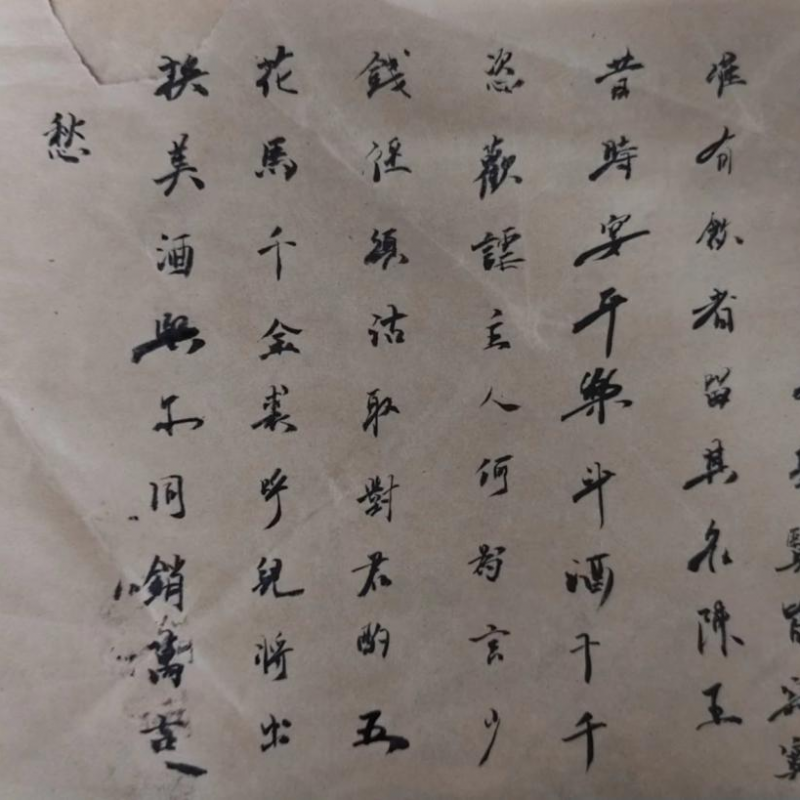 賢皆寂寞
惟有飲者留其名陳王
昔時宴平樂斗酒十千
恣歡謔主人何為言少
錢徑須沽取對君酌五
花馬千金裘呼兒將出
換美酒與尔同銷萬古
愁